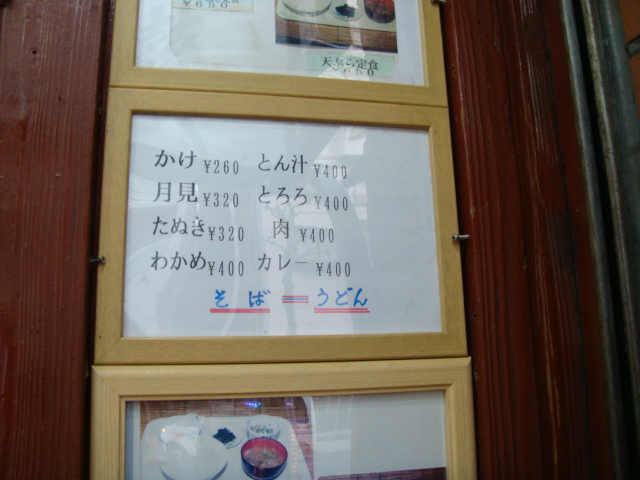 天ぷら定食
かけ ¥260 とん汁 ¥400
月見 ¥320 とろろ ¥400
たぬき ¥320 肉 ¥400
わかめ ¥400 カレー ¥400
そば = うどん